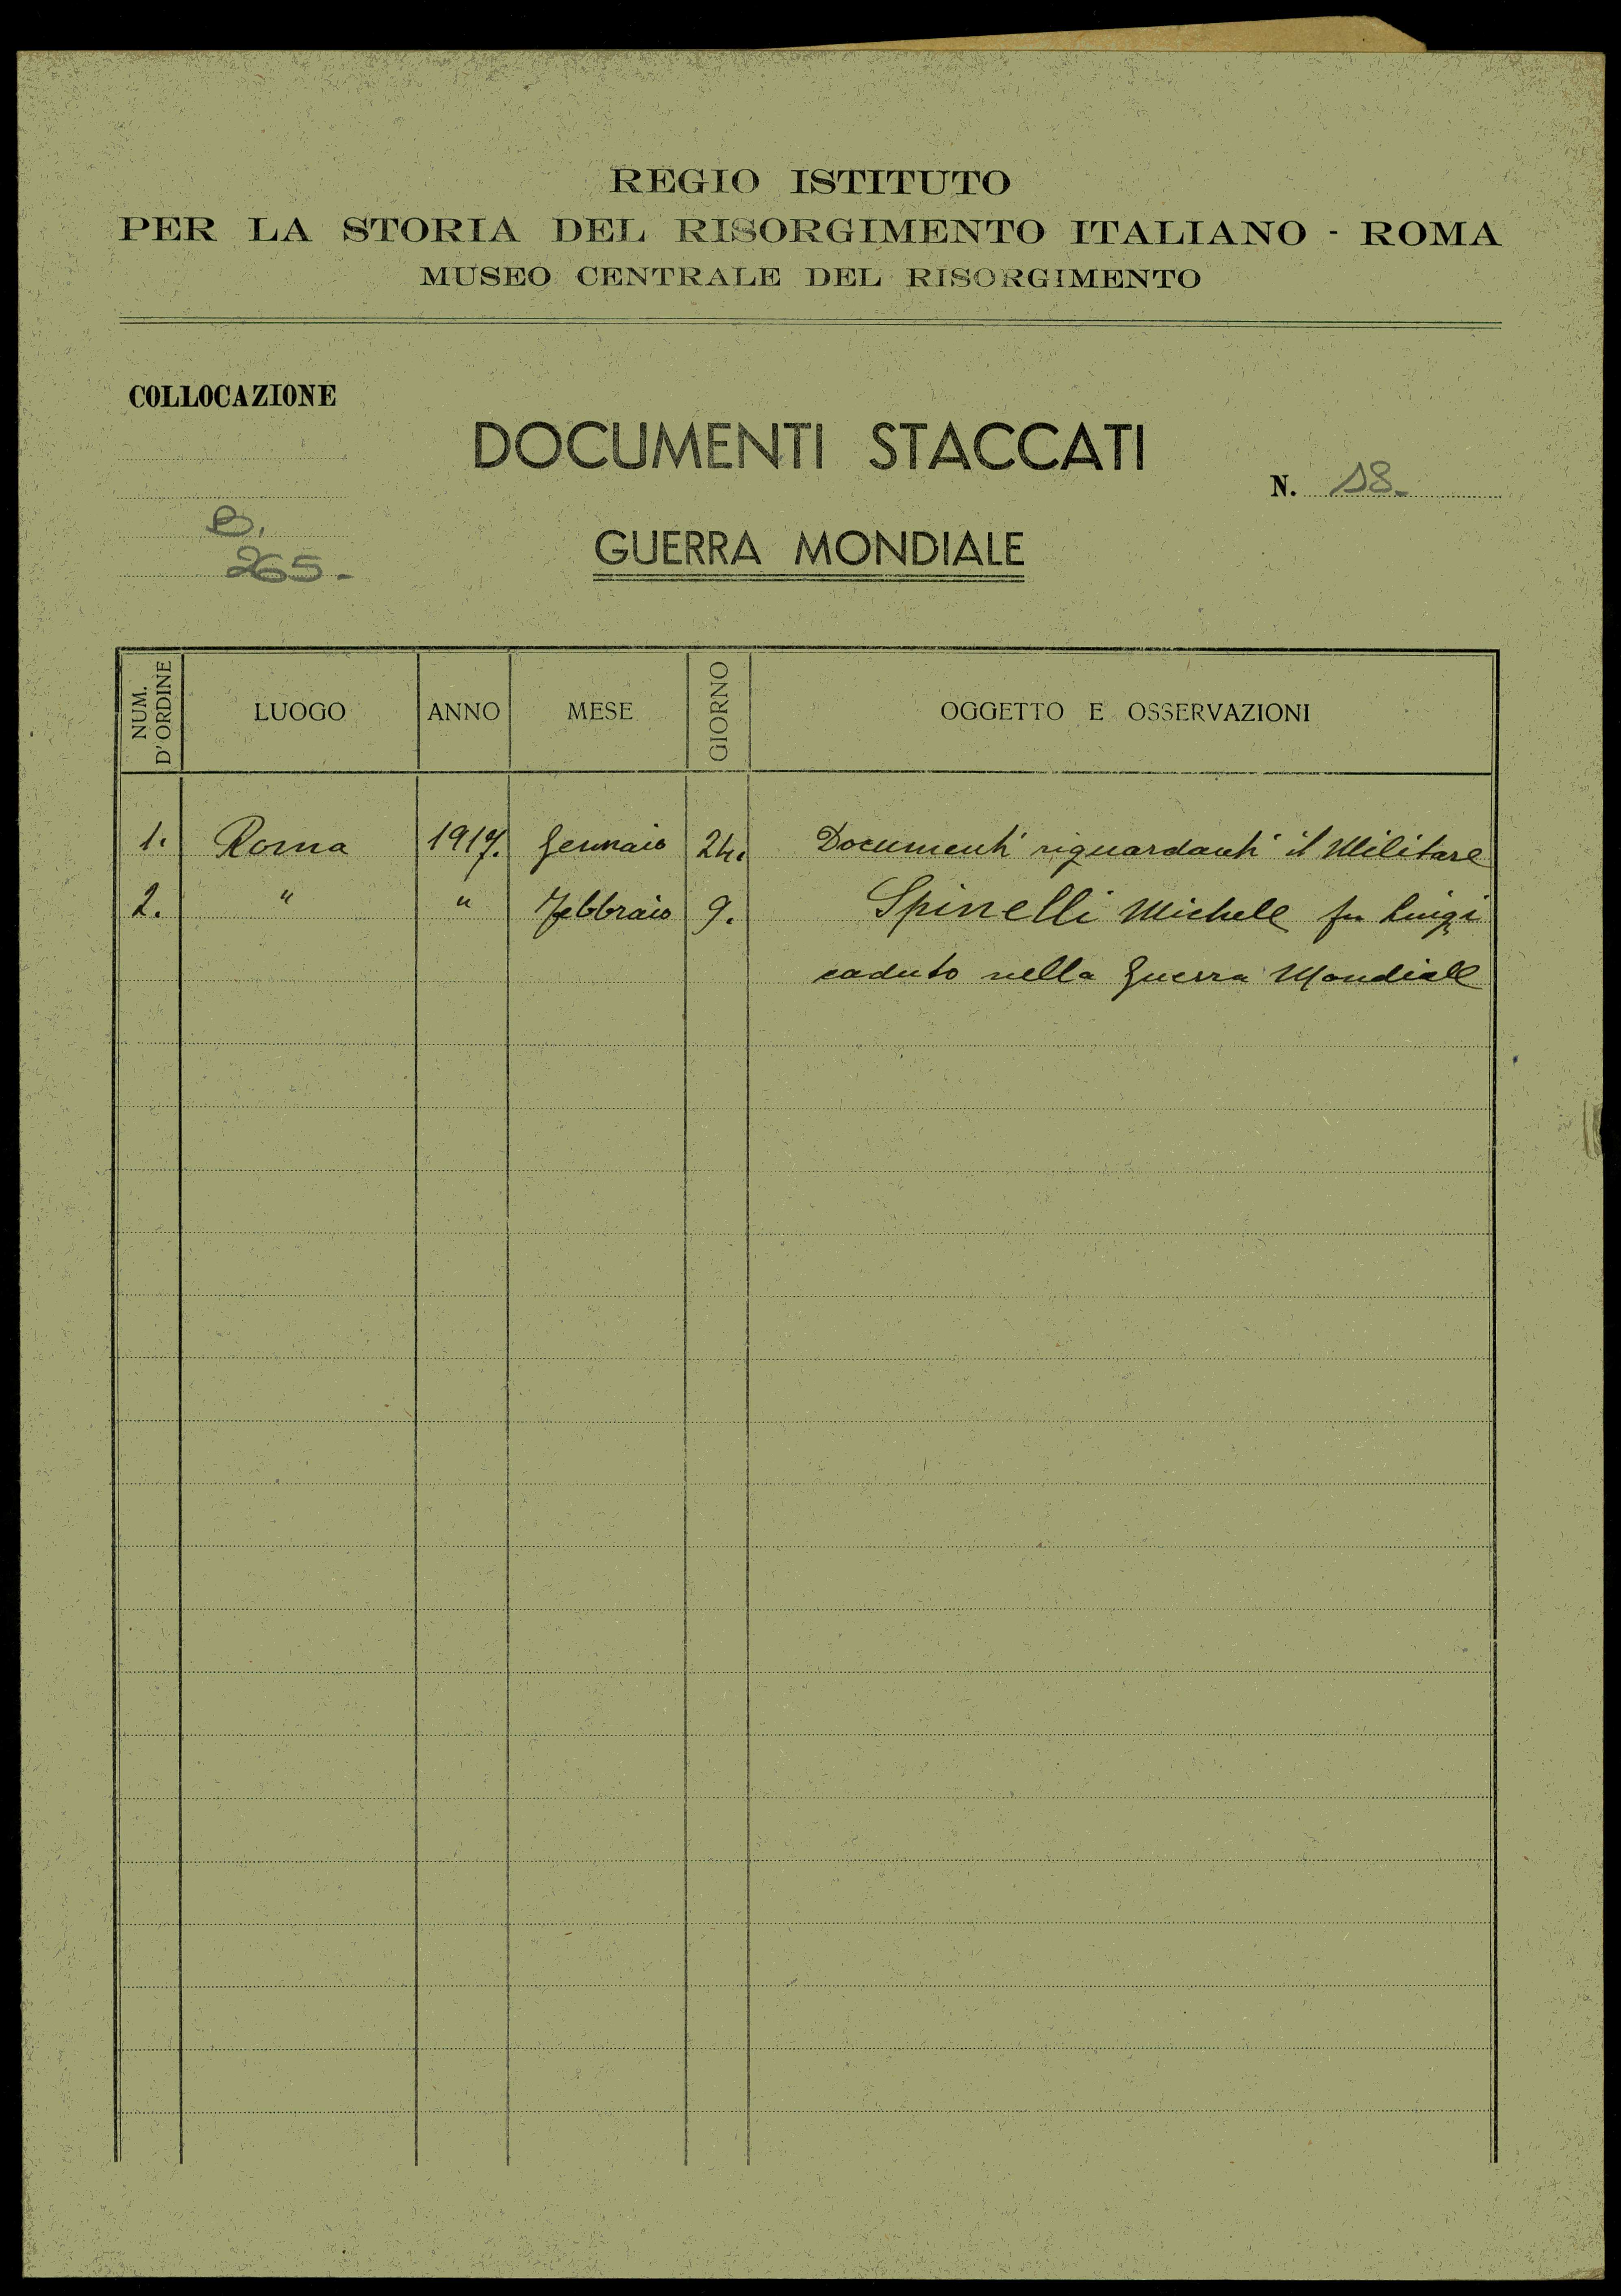 REGIO ISTITUTO
PER LA STORIA DEL RISORGIMENTO ITALIANO - ROMA
MUSEO CENTRALE DEL RISORGIMENTO
COLLOCAZIONE
DOCUMENTI STACCATI
N. 18.
B.
265.
GUERRA MONDIALE
NUM. D'ORDINE LUOGO ANNO MESE GIORNO OGGETTO E OSSERVAZIONI
1. Roma 1917. Gennaio 24. Documenti riguardanti il Militare
2. " " Febbraio 9. Spinelli Michele fu Luigi
caduto nella Guerra Mondiale